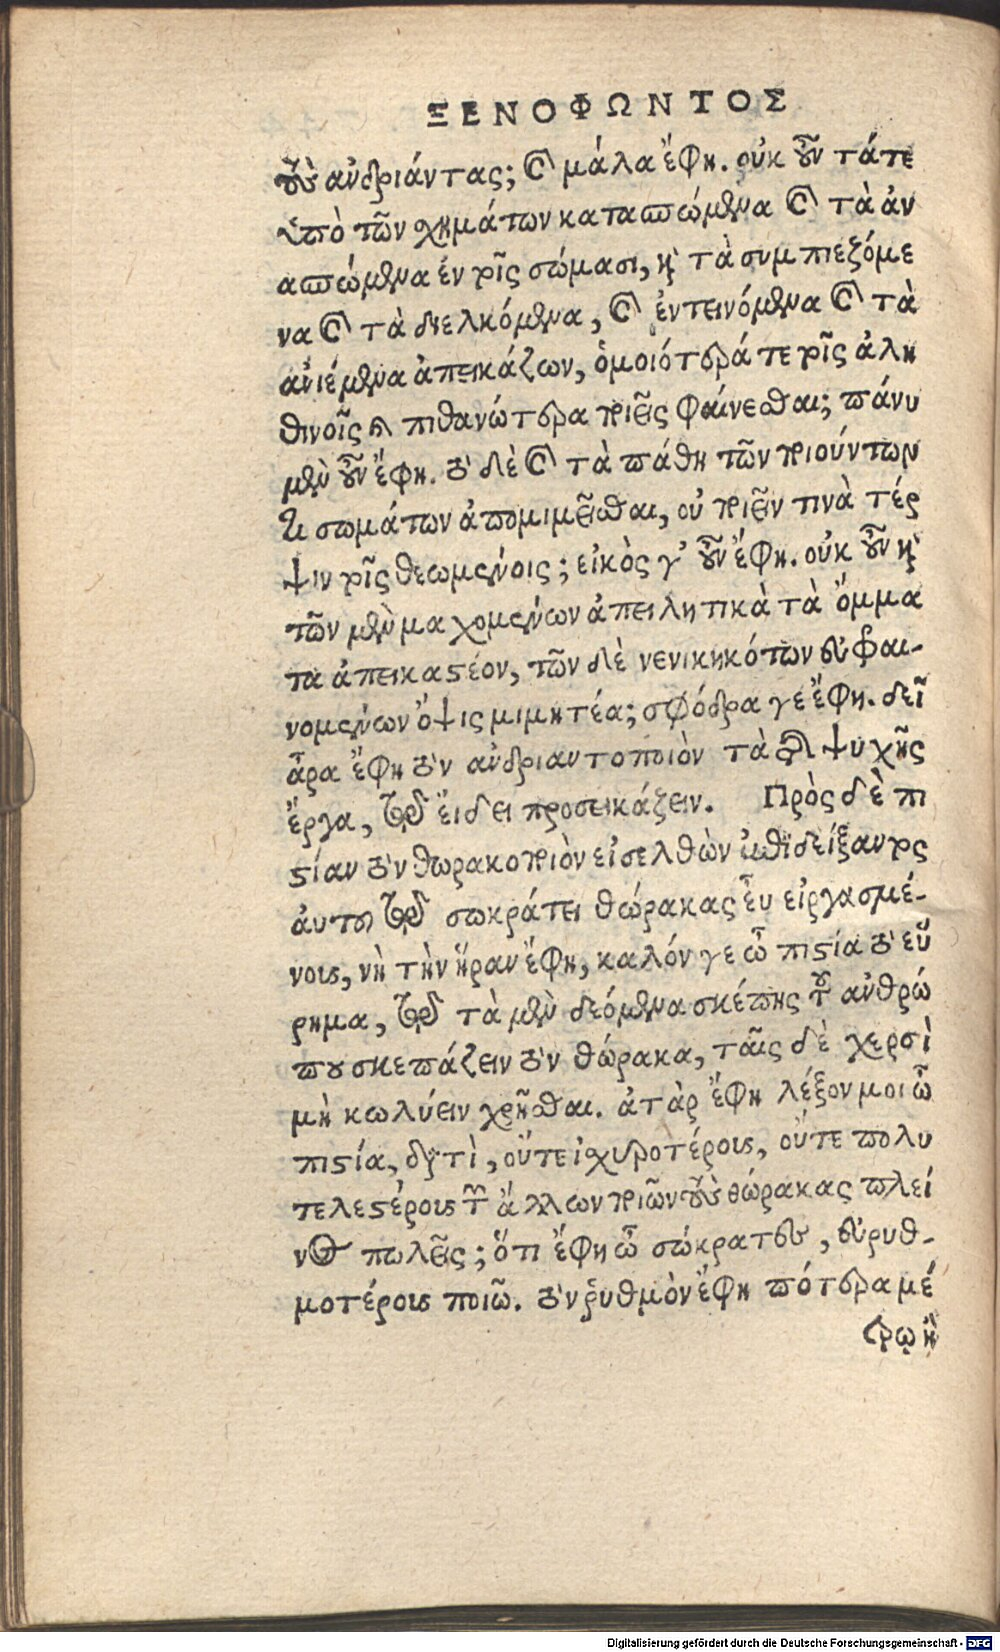 ΞΕΝΟΦΩΝΤΟΣ
τοὺς ἀνδριάντας; καὶ μάλα ἔφη. οὐκ οὖν τάτε
ὑπὸ τῶν χημάτων κατασπώμενα καὶ τὰ ἀν
ασπώμενα ἐν τοῖς σώμασι, καὶ τὰ συμπιεζόμε
να καὶ τὰ διελκόμενα, καὶ ἐντεινόμενα καὶ τὰ
ἀνιέμενα ἀπεικάζων, ὁμοιότερά τε τοῖς ἀλη
θινοῖς καὶ πιθανώτερα ποιεῖς φαίνεσθαι; πάνυ
μὲν οὖν ἔφη. τὸ δὲ καὶ τὰ πάθη τῶν ποιούντων
τι σωμάτων ἀπομιμεῖσθαι, οὐ ποιεῖν τινὰ τέρ
ψιν τοῖς θεωμένοις; εἰκὸς γ’ οὖν ἔφη. οὐκ οὖν καὶ
τῶν μὲν μαχομένων ἀπειλητικὰ τὰ ὄμμα
τα ἀπεικαστέον, τῶν δὲ νενικηκότων εὐφραι-
νομένων ὄψις μιμητέα; σφόδρα γε ἔφη. δεῖ
ἄρα ἔφη τὸν ἀνδριαντοποιὸν τὰ τῆς ψυχῆς
ἔργα, τῷ εἴδει προσεικάζειν. Πρὸς δὲ πι
στίαν τὸν θωρακοποιὸν εἰσελθὼν ἐπιδείξαντος
ἀυτοῦ τῷ σωκράτει θώρακας εὖ εἰργασμέ-
νους, νὴ τὴν ἥραν ἔφη, καλόν γε ὦ πιστία τὸ εὕ
ρημα, τῷ τὰ μὲν δεόμενα σκέπης τοῦ ἀνθρώ
που σκεπάζειν τὸν θώρακα, ταῖς δὲ χερσὶ
μὴ κωλύειν χρῆσθαι. ἀτὰρ ἔφη λέξον μοι ὦ
πιστία, διὰτὶ, οὔτε ἰσχυροτέρους, οὔτε πολυ
τελεστέρους τῶν ἄλλων ποιῶν τοὺς θώρακας πλεί
νος πωλεῖς; ὅτι ἔφη ὦ σώκρατες, εὐρυθ-
μοτέρους ποιῶ. τὸν ῥυθμὸν ἔφη πότερα μέ
τρῳ ἢ
Digitalisierung gefördert durch die Deutsche Forschungsgemeinschaft - DFG